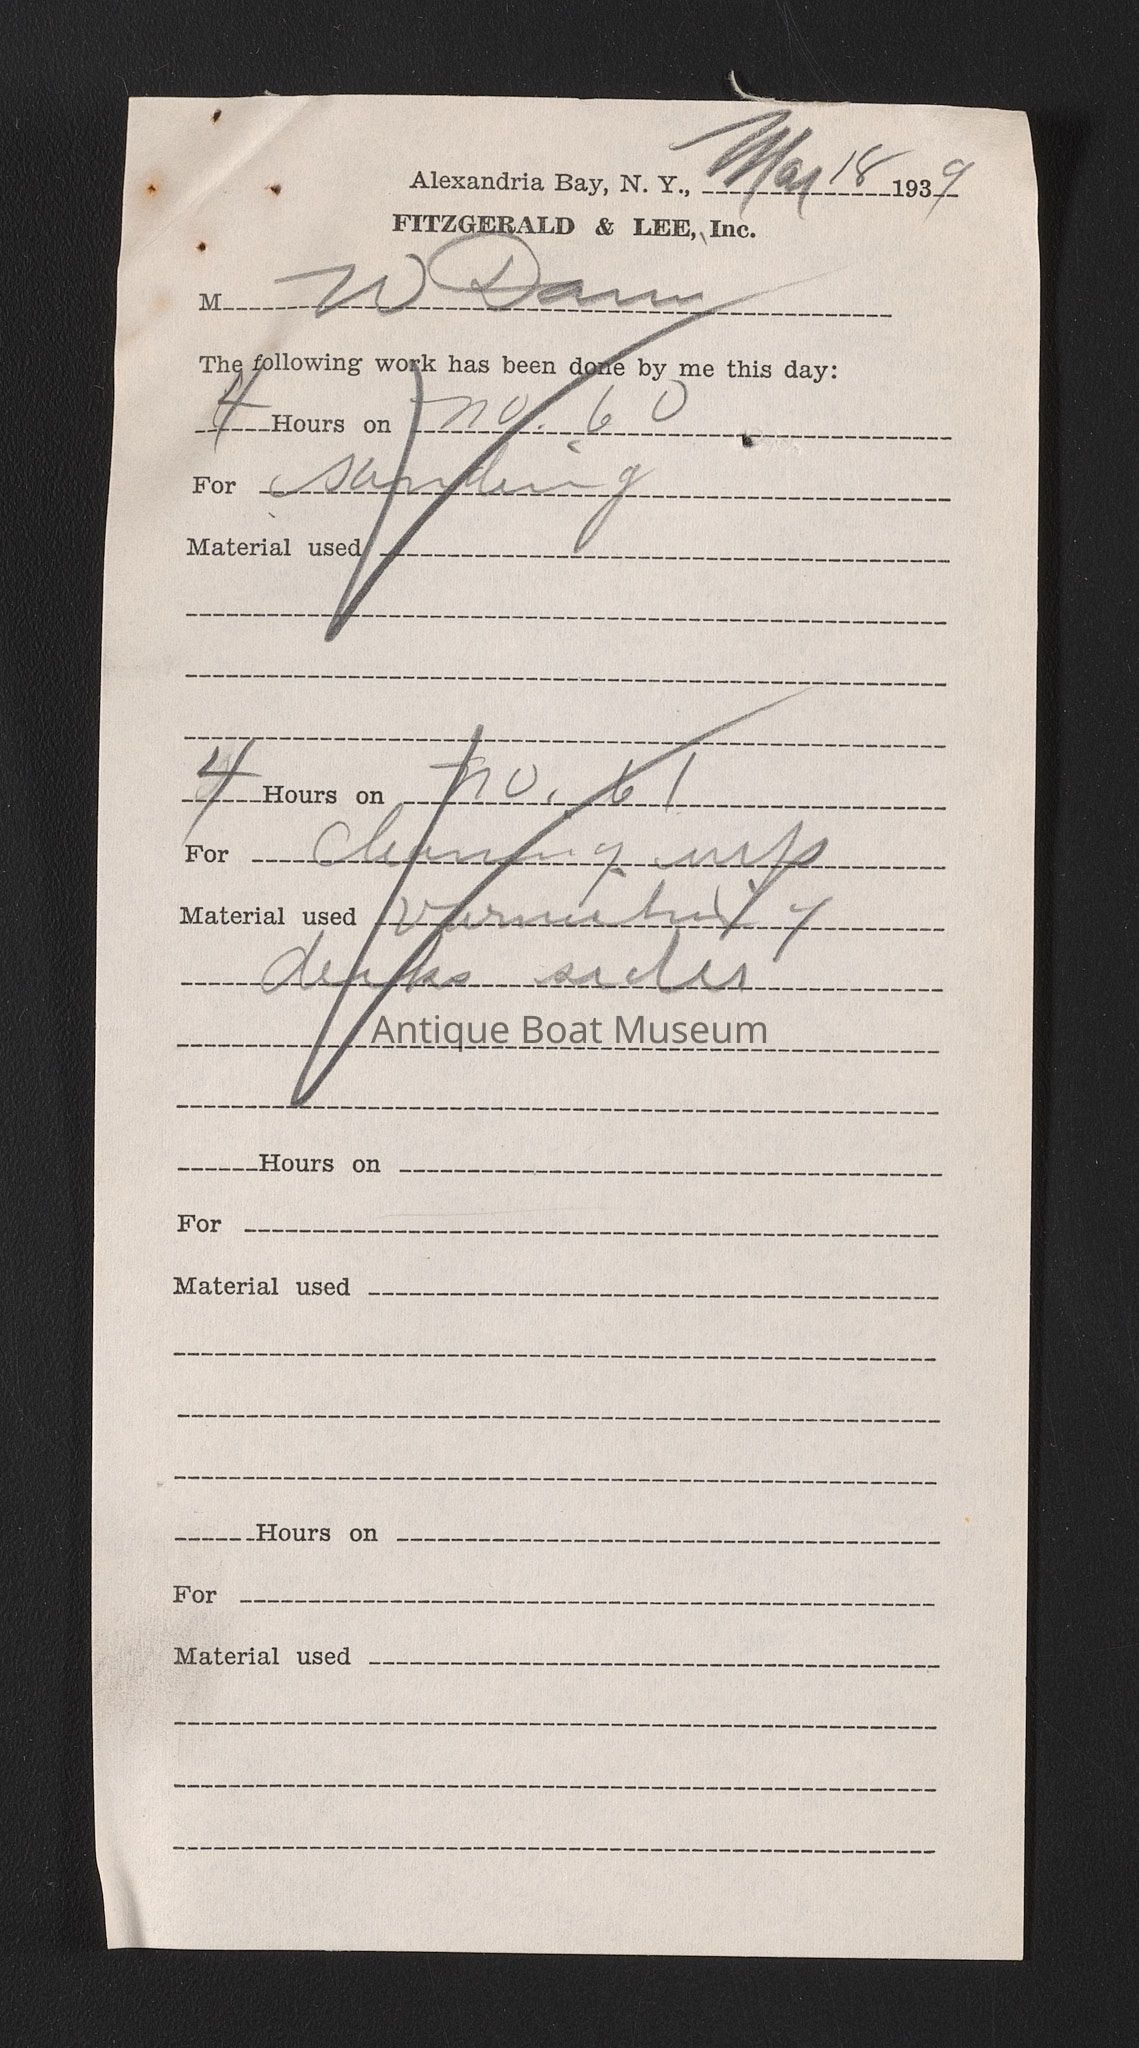 Alexandria Bay, N. Y., Mar 18 1939
FITZGERALD & LEE, Inc.
M W Dann
The following work has been done by me this day:
4 Hours on no. 60
For sanding
Material used
4 Hours on no. 61
For cleaning up
Material used varnishing
decks sides
Antique Boat Museum
Hours on
For
Material used
Hours on
For
Material used